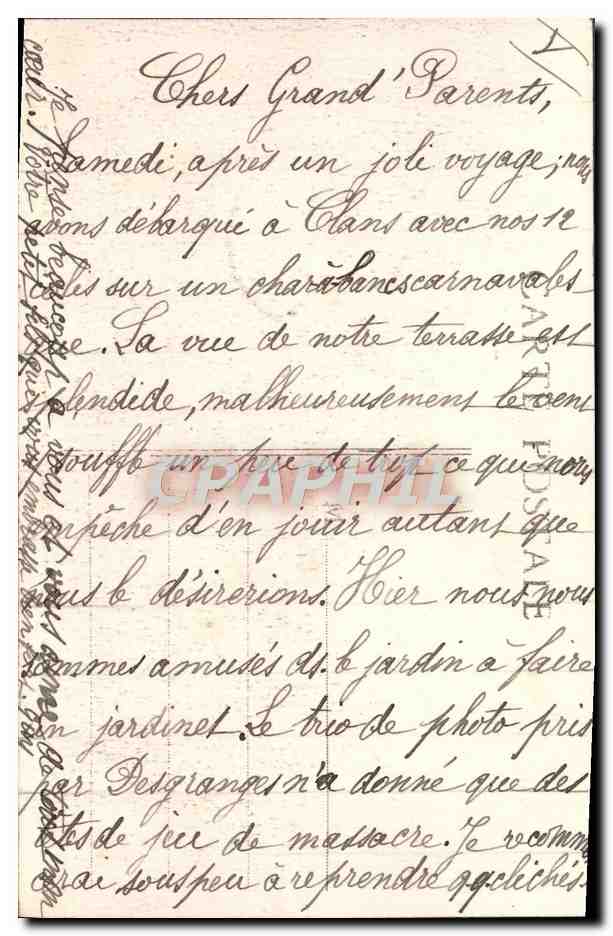 1
Chers Grand' Parents,
Samedi, après un joli voyage, nous
avons débarqué à Clans avec nos 12
colis sur un char-à-bancs carnavales
que. La vue de notre terrasse est
splendide, malheureusement le vent
souffle un peu de trop ce qui nous
empêche d'en jouir autant que
nous le désirerions. Hier nous nous
sommes amusés ds. le jardin à faire
un jardinet. Le trio de photo pris
par Desgranges n'a donné que des
têtes de jeu de massacre. Je recomm
cerai sous peu à reprendre qq. clichés.
Je pense beaucoup à vous et vous aime de tout mon
cœur. Votre petit qui vous embrasse bien fort.
CARTE POSTALE
CPAPHIL